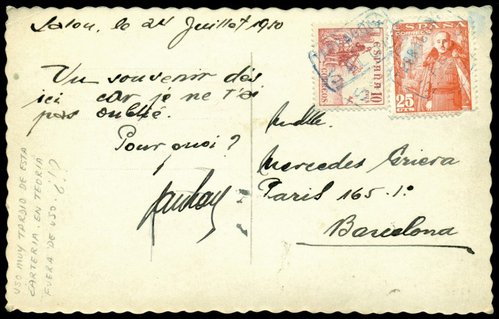 Salou, le 24 Juillet 1950
Un souvenir dés
ici car je ne t'ai
pas oublié.
Pourquoi?
ESPAÑA 10
ESPAÑA
25
CTS
Mdlle.
Mercedes Griera
Paris 165-1º
Barcelona
USO MUY TARDIO DE ESTA
CARTERIA. EN TEORIA
FUERA DE USO. ¿!?